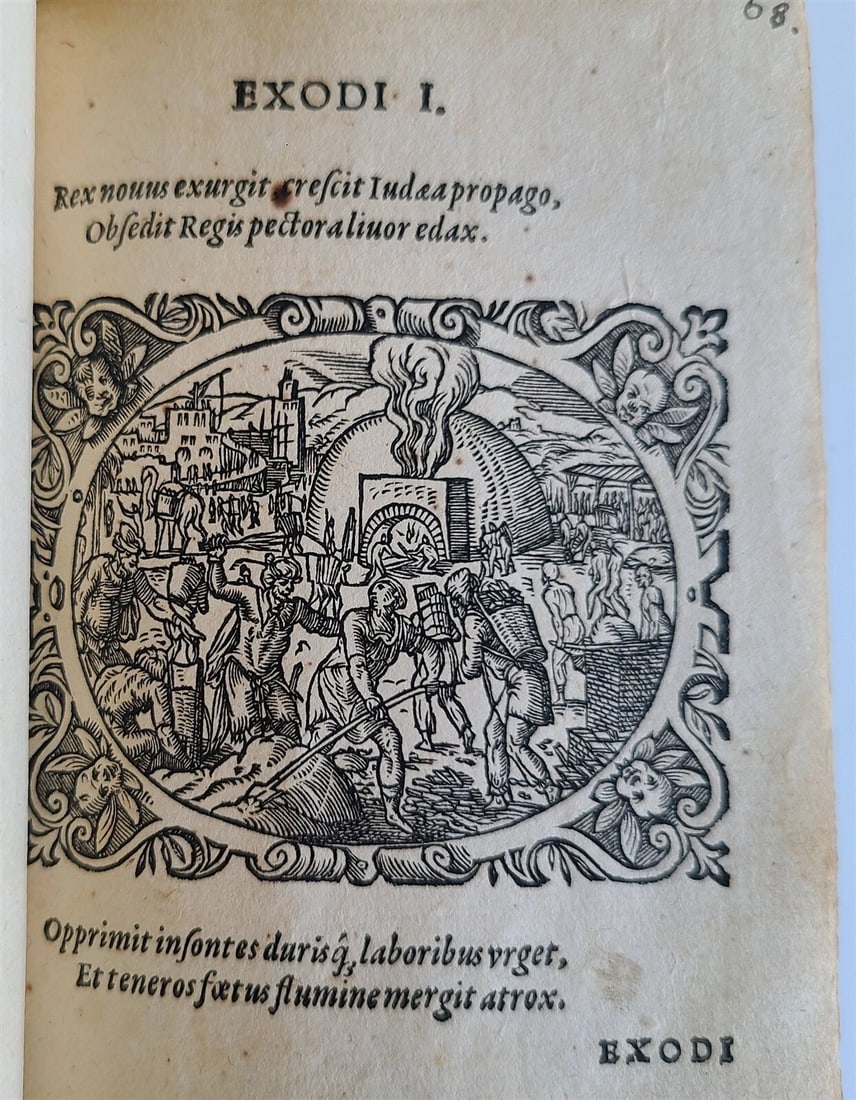 68.
EXODI I.
Rex nouus exurgit, creſcit Iudæa propago,
Obſedit Regis pectora liuor edax.
Opprimit inſontes durisq́, laboribus vrget,
Et teneros fœtus flumine mergit atrox.
EXODI